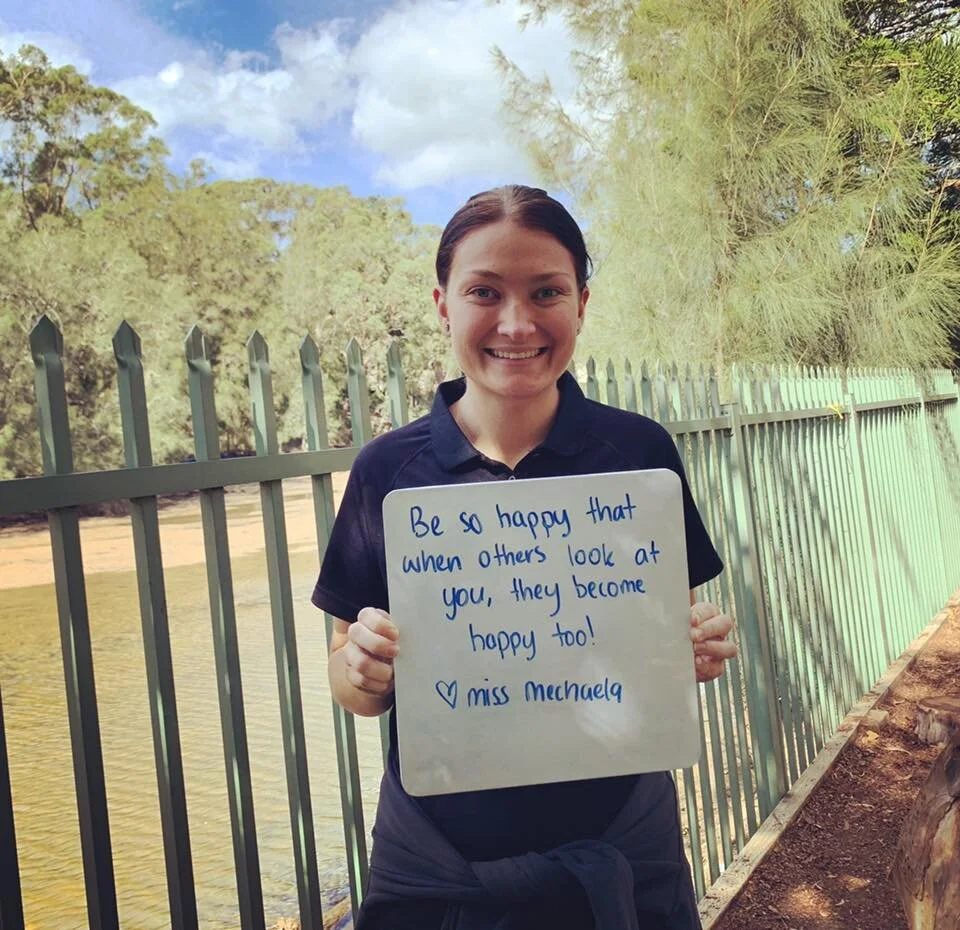 Be so happy that
when others look at
you, they become
happy too!
♡ miss mechaela